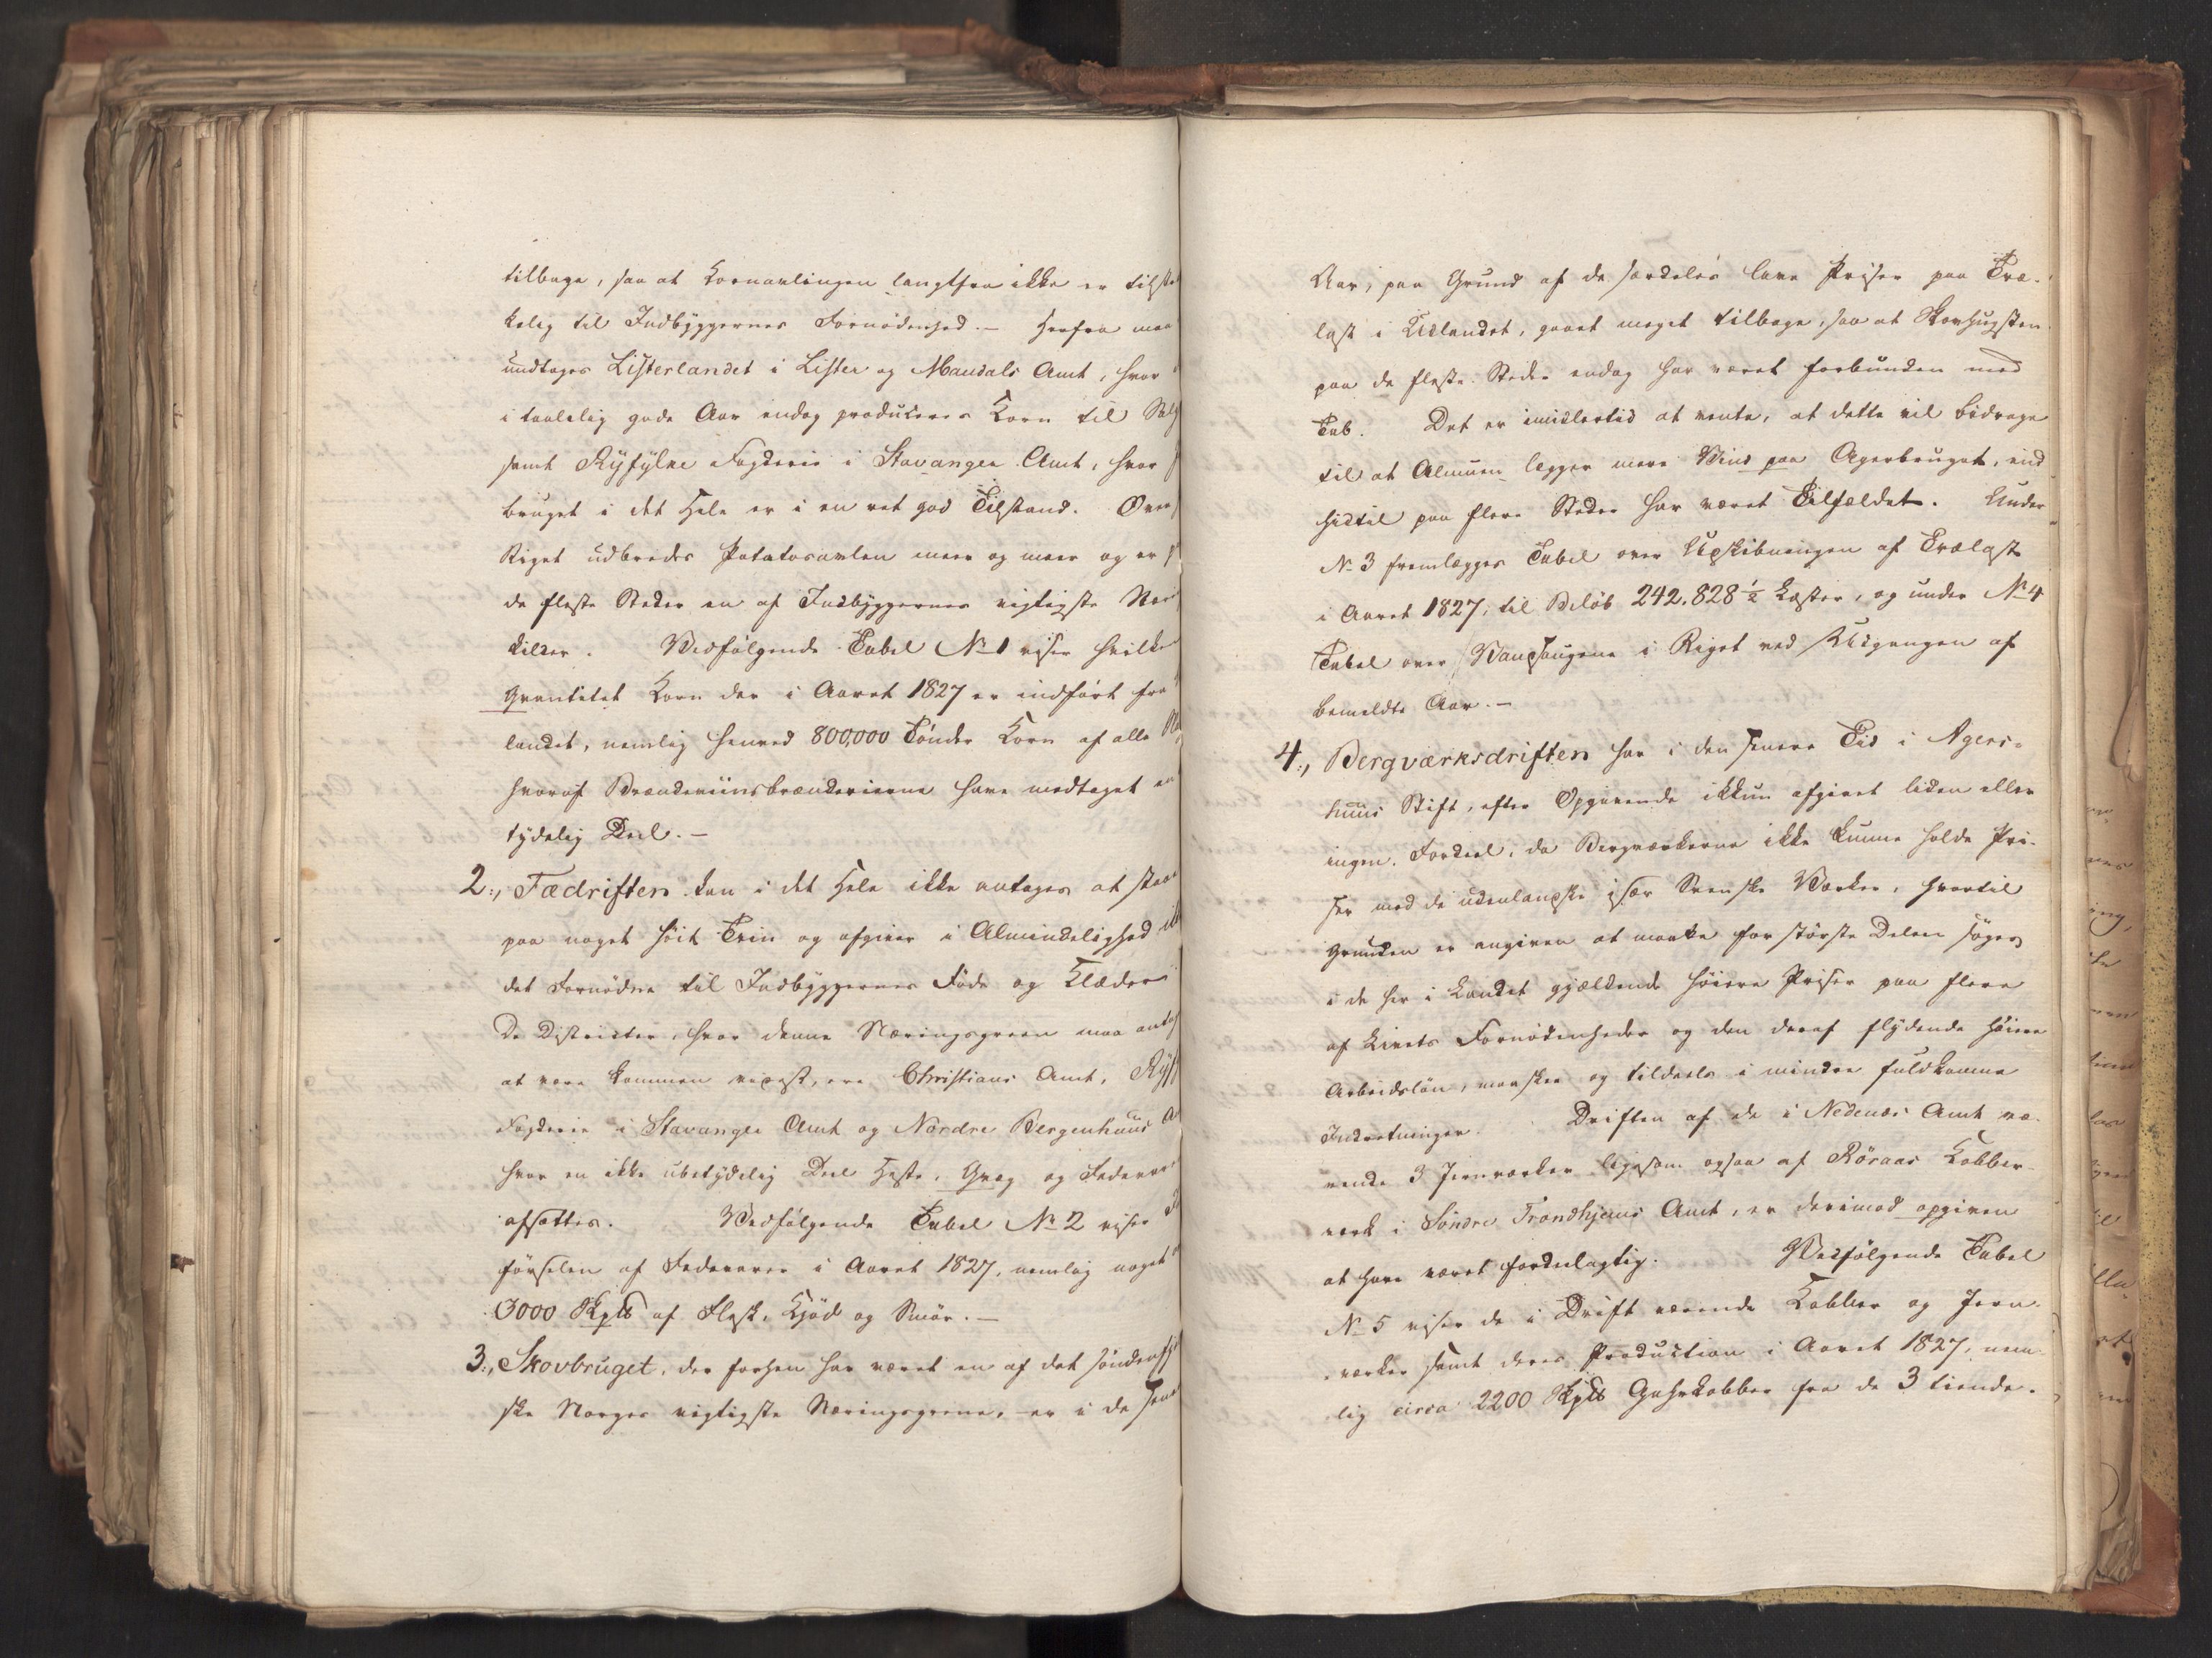 tilbage, saa at Kornavlingen langtfra ikke er tilstræk
kelig til Indbyggernes Fornødenhed.— Herfra maa
undtages Listerlandet i Lister og Mandals Amt, hvor
i taalelig gode Aar endog produceres Korn til Salg
samt Ryfylke Fogderie i Stavanger Amt, hvor
bruget i det Hele er i en ret god Tilstand. Over
Riget udbredes Potatosavlen meer og meer og er p
de fleste Steder en af Indbyggernes vigtigste Nær
kilder. Vedfølgende Tabel No 1 viser hvilken
Qvantitet Korn der i Aaret 1827 er indført fra
landet, nemlig henved 800,000 Tønder Korn af alle
hvoraf Brændeviinsbrænderierne have medtaget en
tydelig Deel.—
2:, Fædriften kan i det Hele ikke antages at staae
paa noget høit Trin og afgiver i Almindelighed
det Fornødne til Indbyggernes Føde og Klæder
De Districter, hvor denne Næringsgreen maa antag
at være kommen videst, ere Christians Amt, Ryf
Fogderie i Stavanger Amt og Nordre Bergenhuus A
hvor en ikke ubetydelig Deel Heste, Qvæg og Fedevar
afsættes. Vedfølgende Tabel No 2 viser
førselen af Fedevarer i Aaret 1827, nemlig noget
3000 Skpd af Flesk, Kjød og Smør.—
3:, Skovbruget, der forhen har været en af det søndenfjel
ske Norges vigtigste Næringsgrene, er i de sene
Aar, paa Grund af de særdeles lave Priser paa Træ-
last i Udlandet, gaaet meget tilbage, saa at Skovhugsten
paa de fleste Steder endog har været forbunden med
Tab. Det er imidlertid at vente, at dette vil bidrage
til at Almuen lægger mere Vind paa Agerbruget, end
hidtil paa flere Steder har været Tilfældet. Under
No 3 fremlægges Tabel over Udskibningen af Trælast
i Aaret 1827, til Beløb 242.828 1/2 Læster, og under No 4
Tabel over Vandsaugene i Riget ved Udgangen af
bemeldte Aar.—
4:, Bergværksdriften har i den senere Tid i Agers-
huus Stift, efter Opgivende ikkun afgivet liden eller
ingen Fordeel, da Bergværkerne ikke kunne holde Pri-
ser med de udenlandske især Svenske Værker, hvortil
Grunden er angiven at maatte for største Delen søges
i de her i Landet gjældende høiere Priser paa flere
af Livets Fornødenheder og den deraf flydende høiere
Arbeidsløn, maaskee og tildeels i mindre fuldkomne
Indretninger. Driften af de i Nedenæs Amt væ-
rende 3 Jernværker ligesom ogsaa af Röraas Kobber-
værk i Søndre Trondhjems Amt, er derimod opgiven
at have været fordeelagtig. Vedfølgende Tabel
No 5 viser de i Drift værende Kobber og Jern-
værker samt deres Production i Aaret 1827, nem-
lig circa 2200 Skpd Gahrkobber fra de 3 tiende-